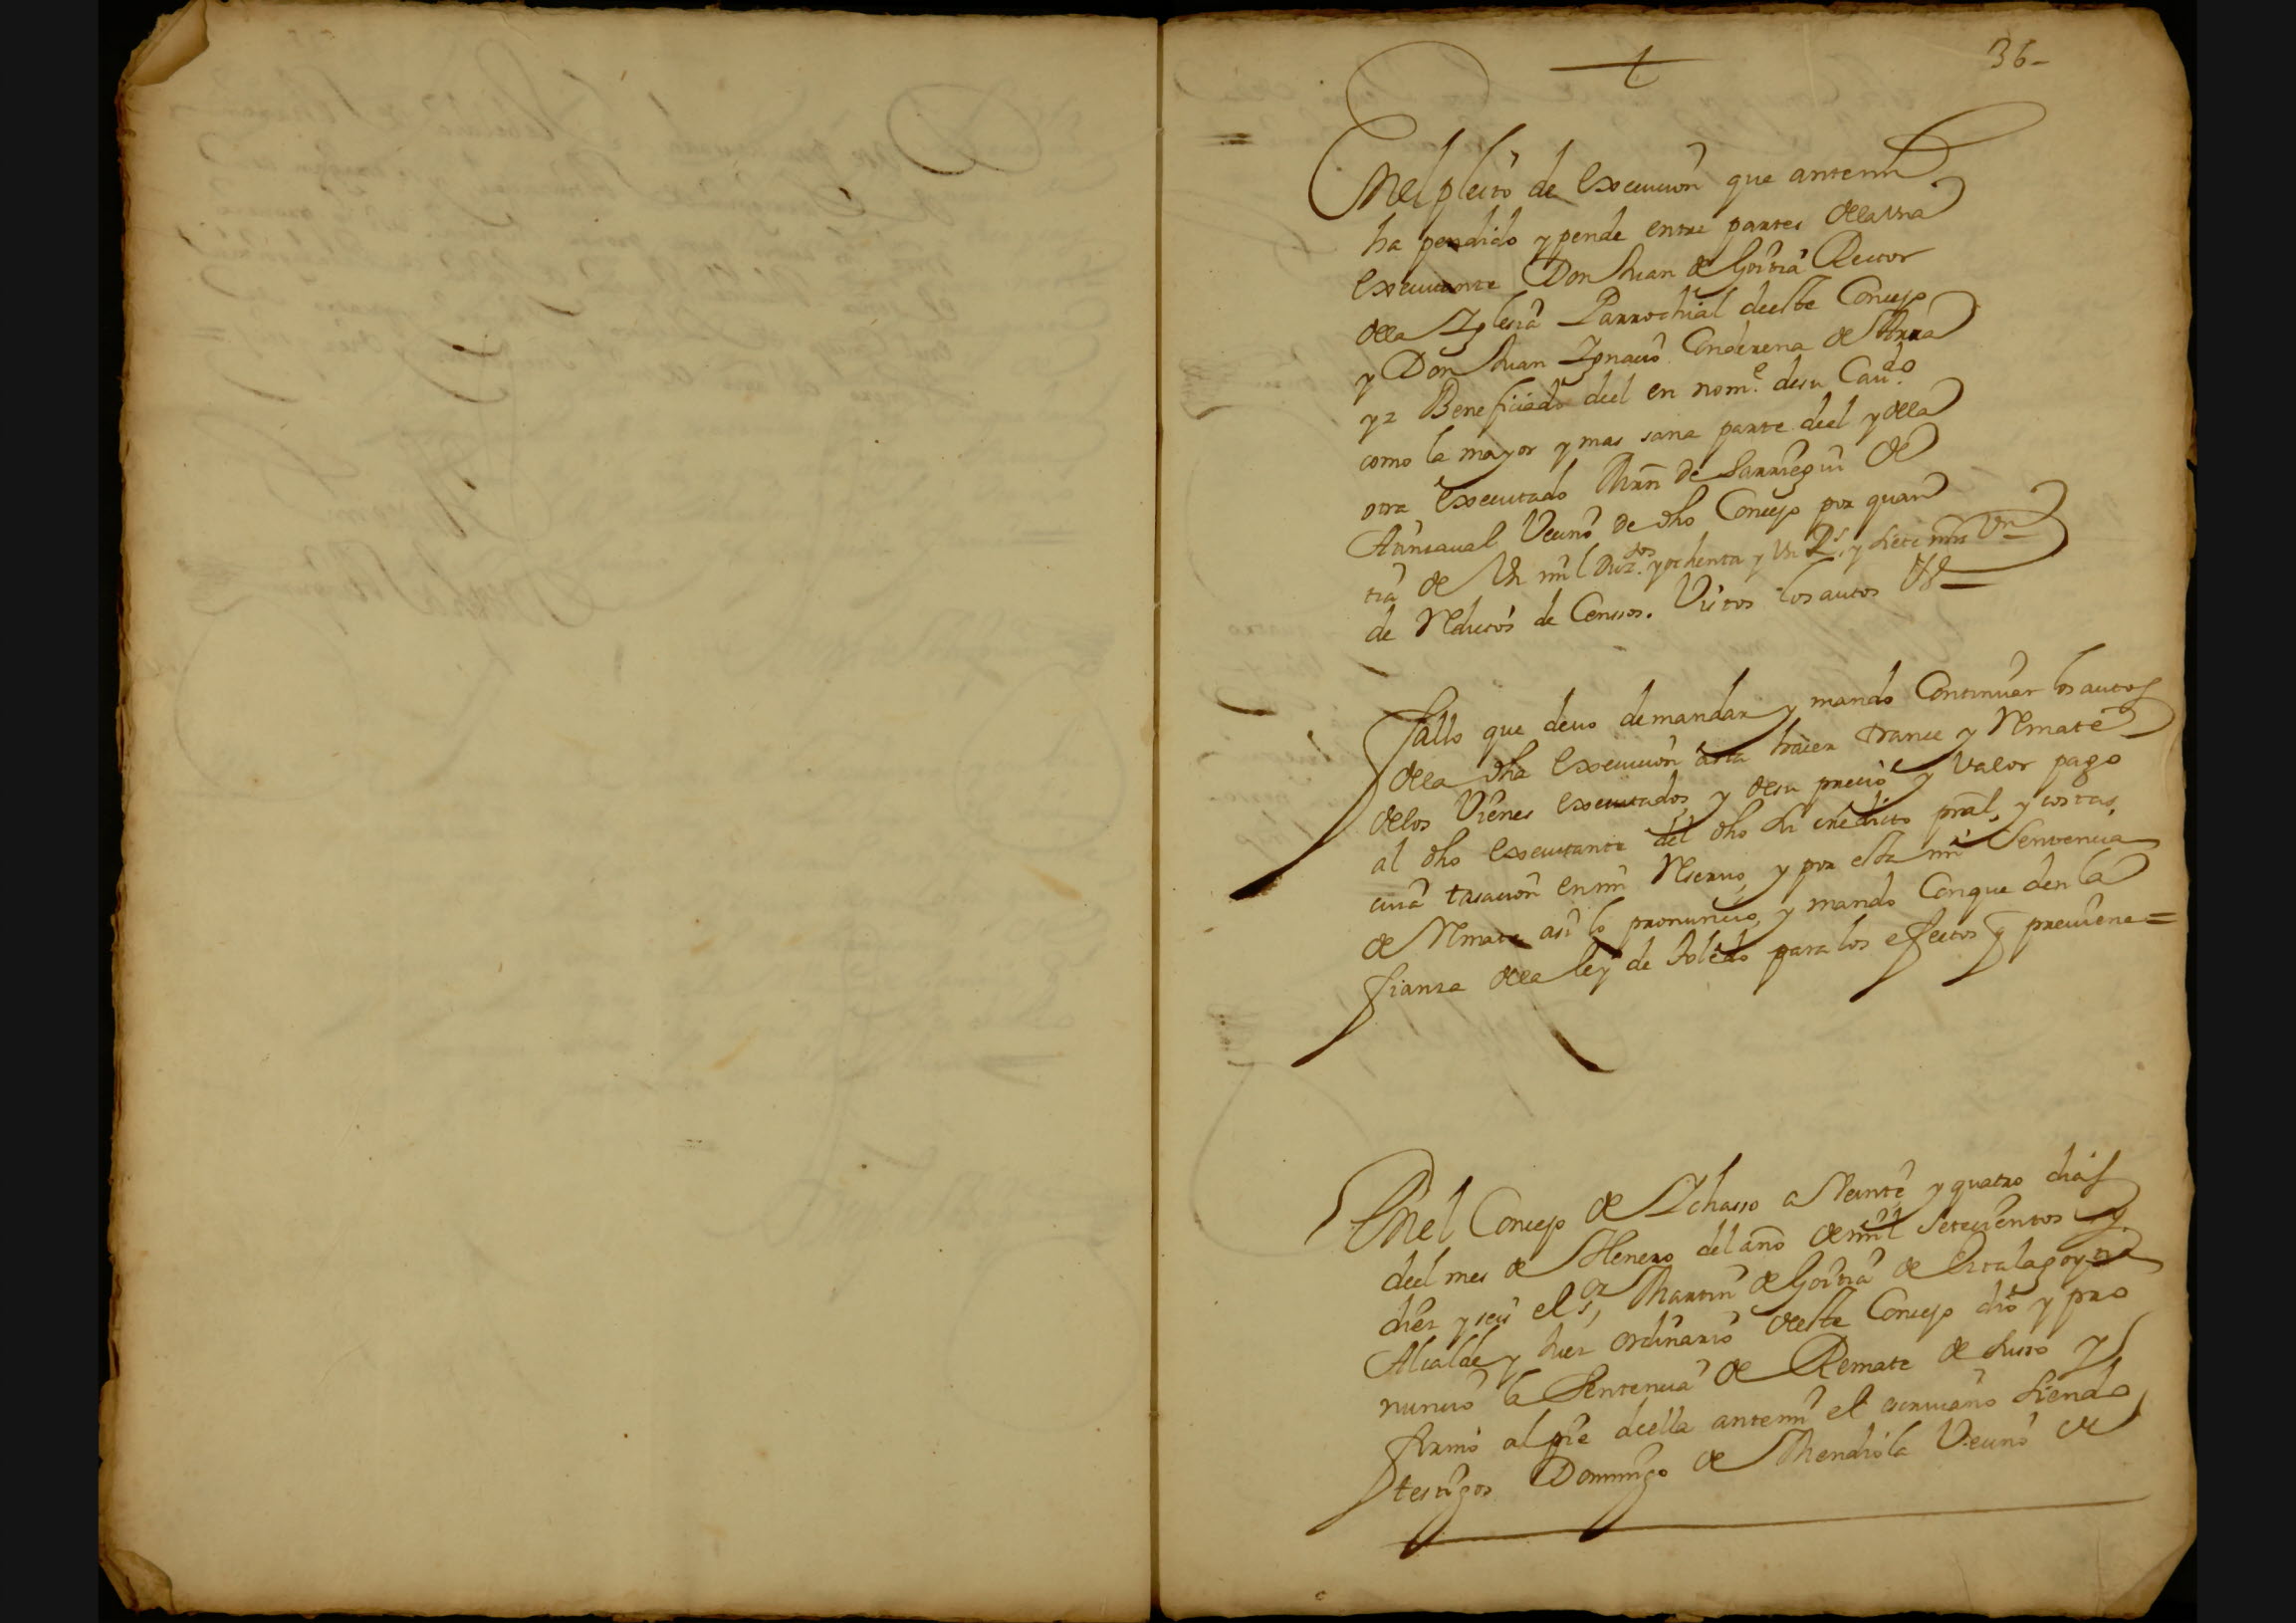 36-
En el pleito de execucion que antemi
ha pendido y pende entre partes de la vna
executante Don Juan de Goitia Rector
de la Iglesia Parrochial de este Concejo
y Don Juan Ignacio de
y Beneficiado del en nom.e de su Cau.do
como la mayor y mas sana parte del y de la
otra executado Mrn de Sarriegui de
Vecino de dho Concejo por quan
tia de Vn mil Duz.tos y ochenta y Vn R.s y siete mrs Vn
de Reditos de Censsos. Vistos los autos V.a
Fallo que deuo de mandar y mando Continuar los autos
de la dha execucion asta hacer trance y Rmate
de los Vienes executados y de su precio y valor pago
al dho executante del dho su credito pral, y costas
cuia tasacion en mi Reseruo, y por esta mi Sentencia
de Rmate asi lo pronuncio, y mando Con que den la
fianza de la ley de Toledo para los efectos q preuiene =
En el Concejo de Ichasso a Veinte y quatro dias
del mes de Henero del año de mil Setecientos y
diez y seis el s.or Martin de Goitia de
Alcalde y Juez ordinario de este Concejo dio y pro
nuncio la Sentencia de Remate de suso y
firmo al pie de ella antemi el escriuano Siendo
testigos Domingo de Mendiola Vecino de